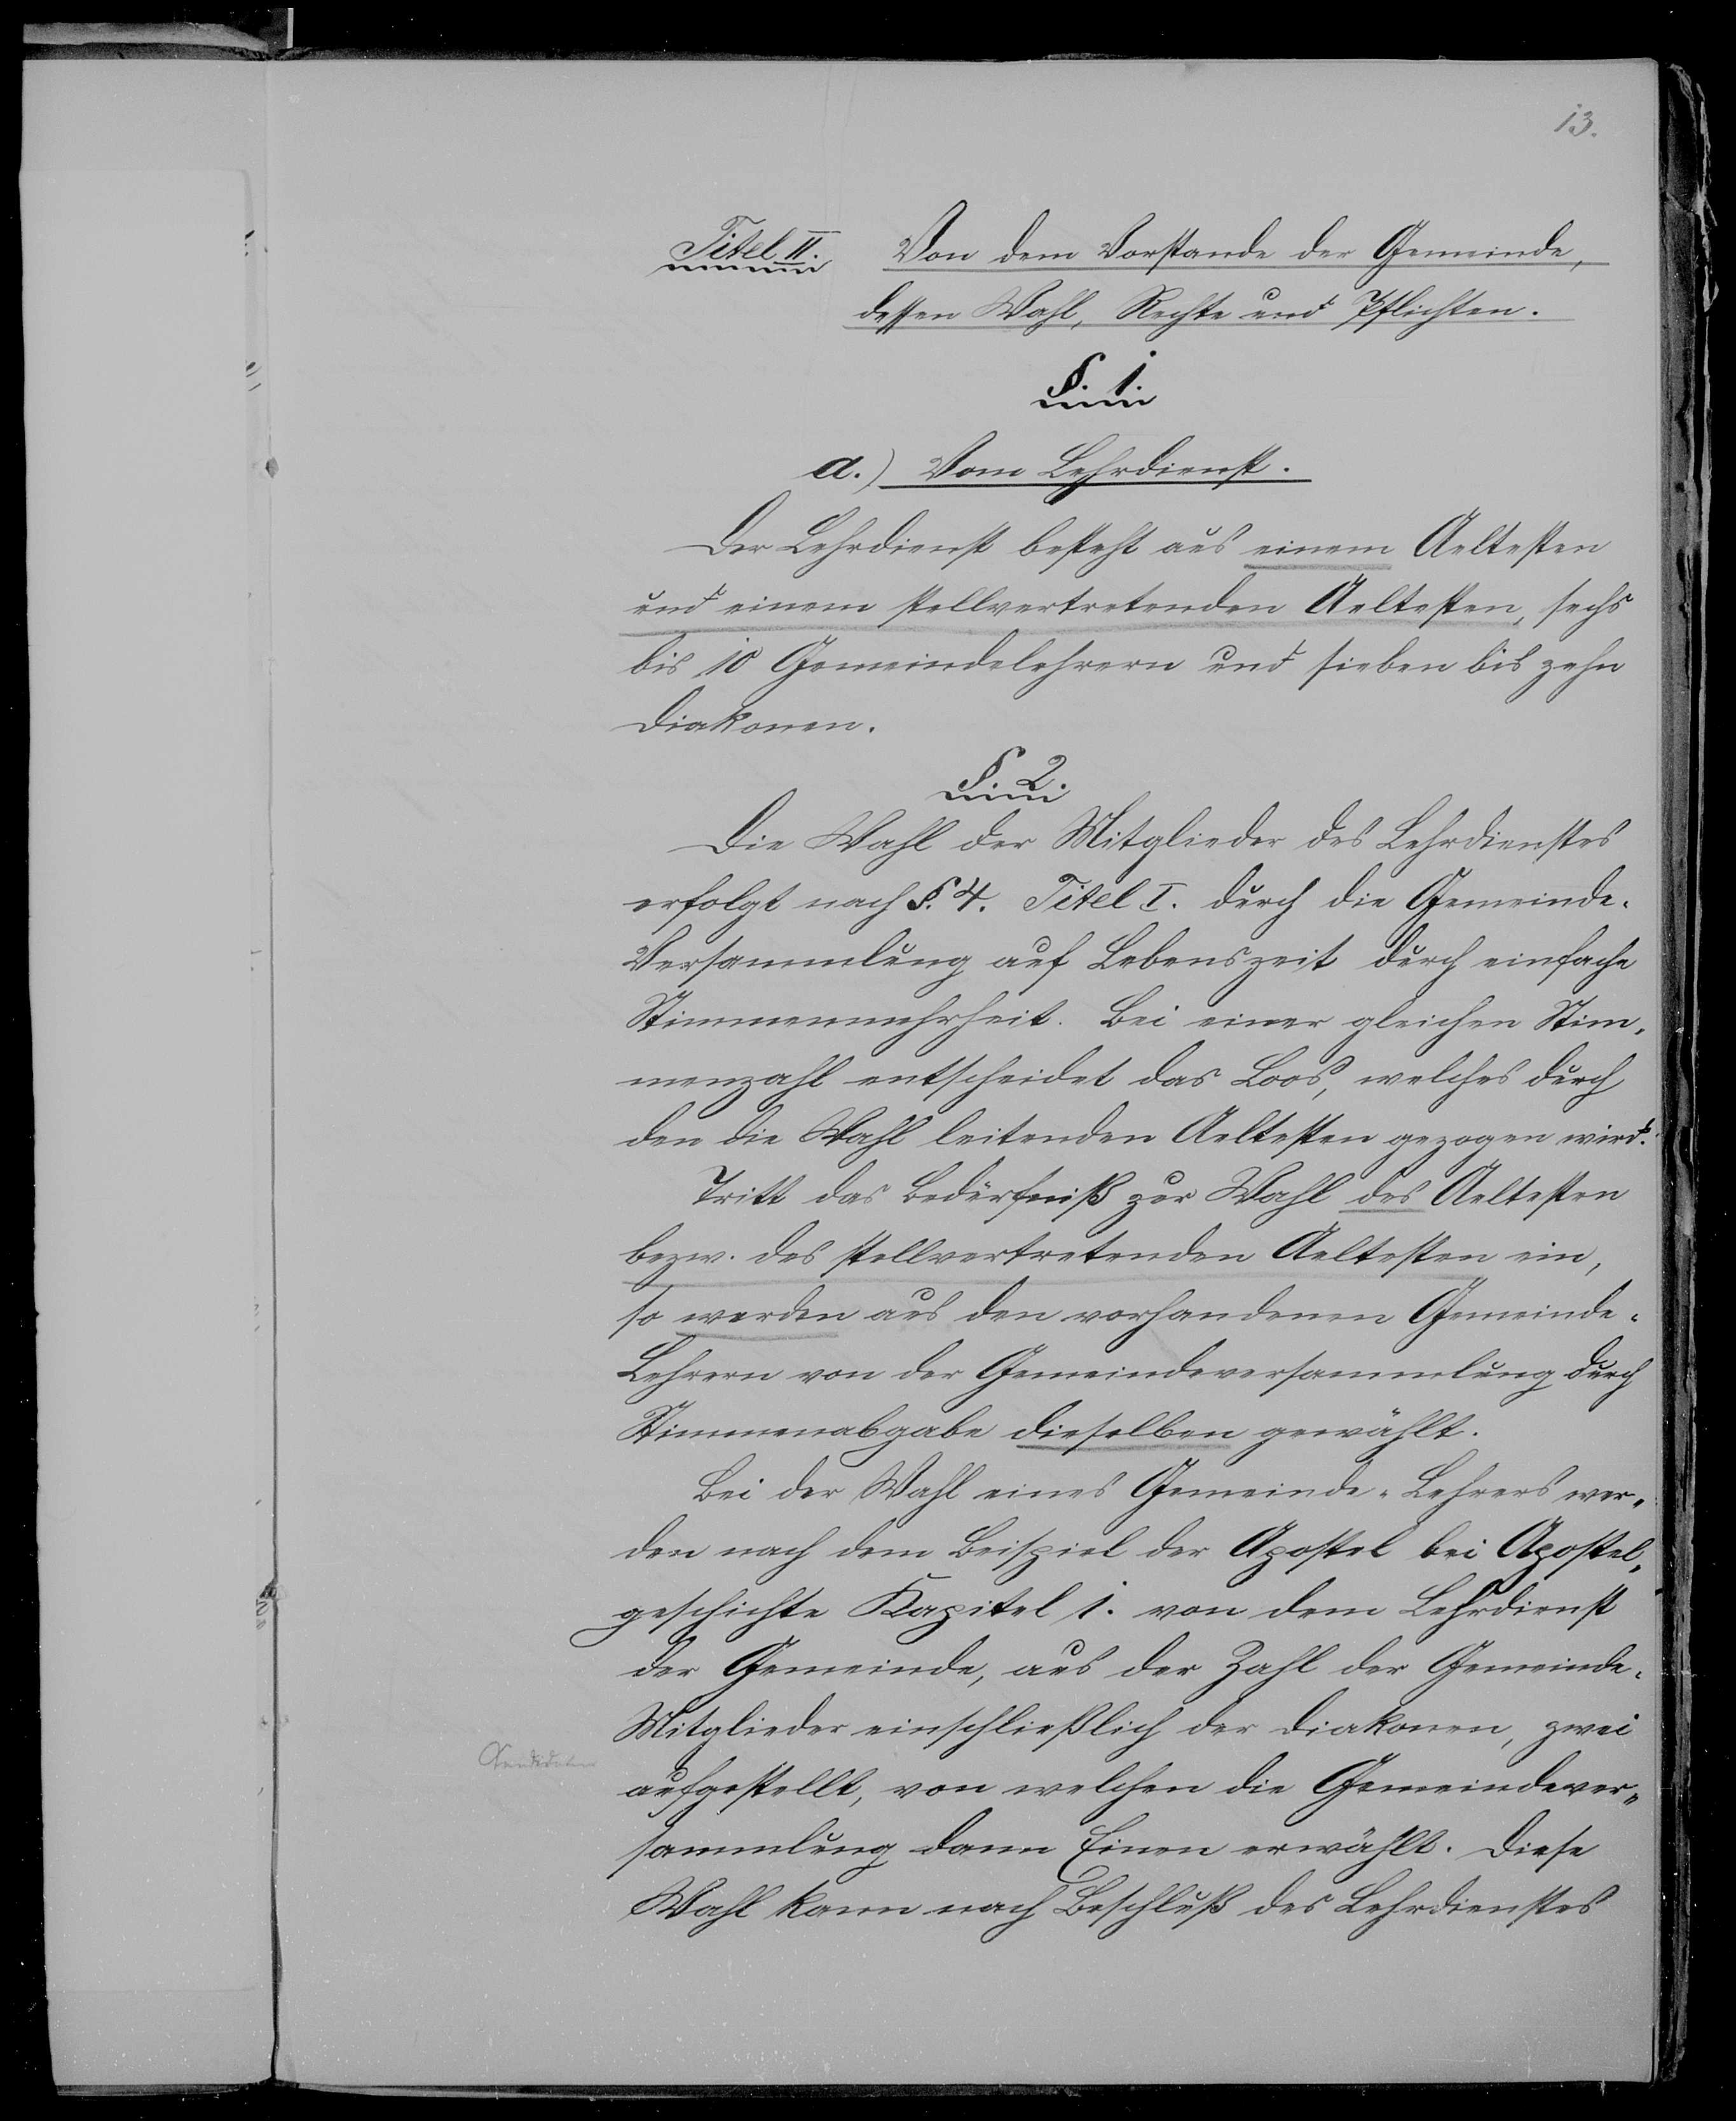 13.
Titel II. Von dem Vorstande der Gemeinde,
dessen Wahl, Rechte und Pflichten.
§. 1.
a.) Vom Lehrdienst.
Der Lehrdienst besteht aus einem Aeltesten
und einem stellvertretenden Aeltesten, sechs
bis 10 Gemeindelehrern und sieben bis zehn
Diakonen.
§. 2.
Die Wahl der Mitglieder des Lehrdienstes
erfolgt nach §. 4. Titel I. durch die Gemeinde-
Versammlung auf Lebenszeit durch einfache
Stimmenmehrheit. Bei einer gleichen Stim-
menzahl entscheidet das Loos, welches durch
den die Wahl leitenden Aeltesten gezogen wird.
Tritt das Bedürfniß zur Wahl des Aeltesten
bezw. des stellvertretenden Aeltesten ein,
so werden aus den vorhandenen Gemeinde-
Lehrern von der Gemeindeversammlung durch
Stimmenabgabe dieselben gewählt.
Bei der Wahl eines Gemeinde-Lehrers wer-
den nach dem Beispiel der Apostel bei Apostel-
geschichte Kapitel 1. von dem Lehrdienst
der Gemeinde, aus der Zahl der Gemeinde-
Mitglieder einschließlich der Diakonen, zwei
Kandidaten
aufgestellt, von welchen die Gemeindever-
sammlung dann Einen erwählt. Diese
Wahl kann nach Beschluß des Lehrdienstes